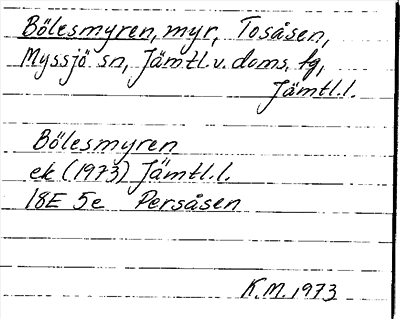 Bölesmyren, myr, Tosåsen,
Myssjö sn, Jämtl. v. doms. tg,
Jämtl.l.
Bölesmyren
ek (1973) Jämtl.l.
18E 5e Persåsen
K.M. 1973